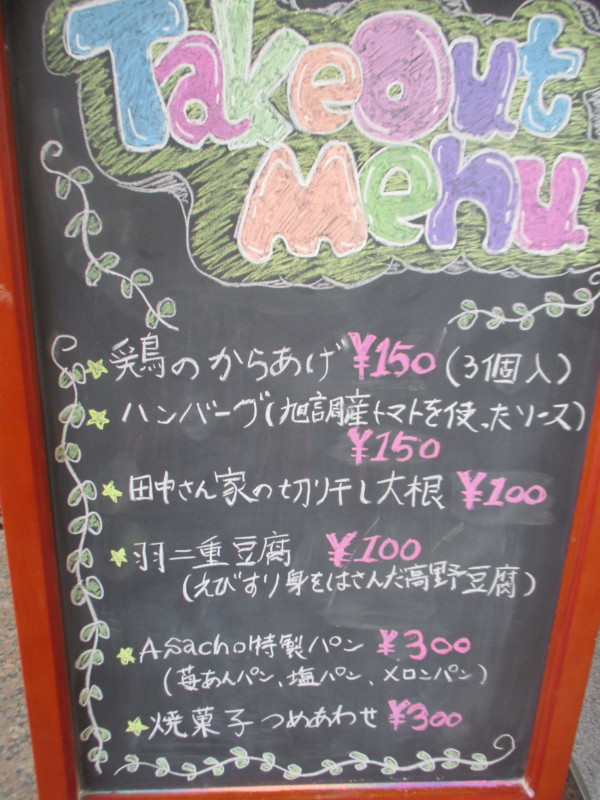 TakeOut
Menu
鶏のからあげ ¥150 (3個入)
ハンバーグ(旭調産トマトを使ったソース)
¥150
田中さん家の切り干し大根 ¥100
羽二重豆腐 ¥100
(えびすり身をはさんだ高野豆腐)
Asacho特製パン ¥300
(苺あんパン、塩パン、メロンパン)
焼菓子つめあわせ ¥300